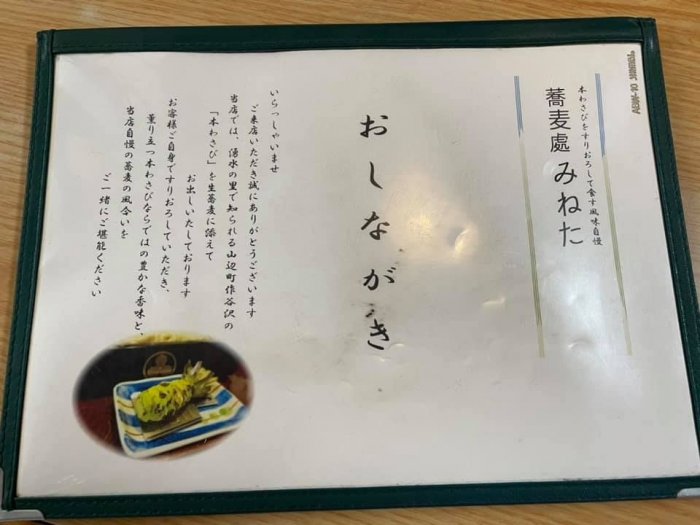 本わさびをすりおろして食す風味自慢
蕎麦處みねた
おしながき
いらっしゃいませ
ご来店いただき誠にありがとうございます
当店では、湧水の里で知られる山辺町作谷沢の
「本わさび」を生蕎麦に添えて
お出しいたしております
お客様ご自身ですりおろしていただき、
薫り立つ本わさびならではの豊かな香味と、
当店自慢の蕎麦の風合いを
ご一緒にご堪能ください